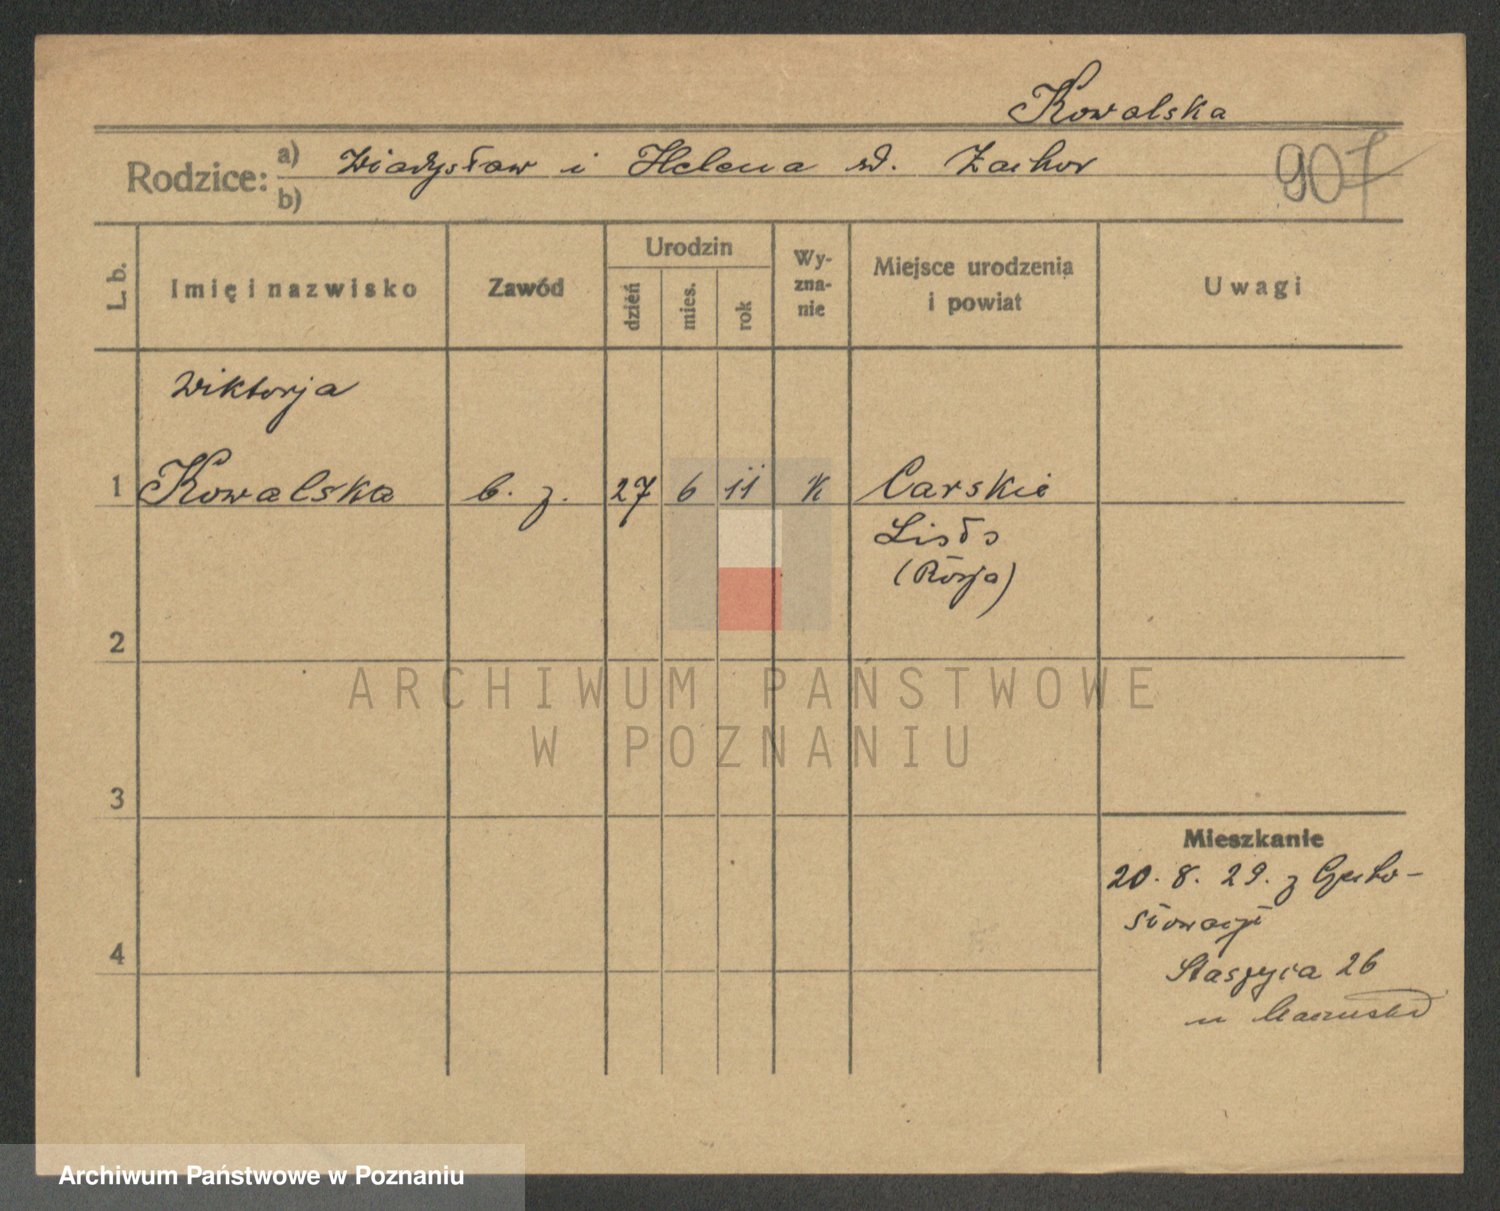 Kowalska
Rodzice: a) Władysław i Helena zd. Zachor
b)
907
L. b.
Imię i nazwisko
Zawód
Urodzin
dzień
mies.
rok
Wy-
zna-
nie
Miejsce urodzenia
i powiat
Uwagi
Wiktorja
1 Kowalska b. z. 27 6 11 K Carskie
Lisło
(Rosja)
2
3
4
Mieszkanie
20. 8. 29. z Czecho-
słowacji
Staszyca 26
u
ARCHIWUM PAŃSTWOWE
W POZNANIU
Archiwum Państwowe w Poznaniu